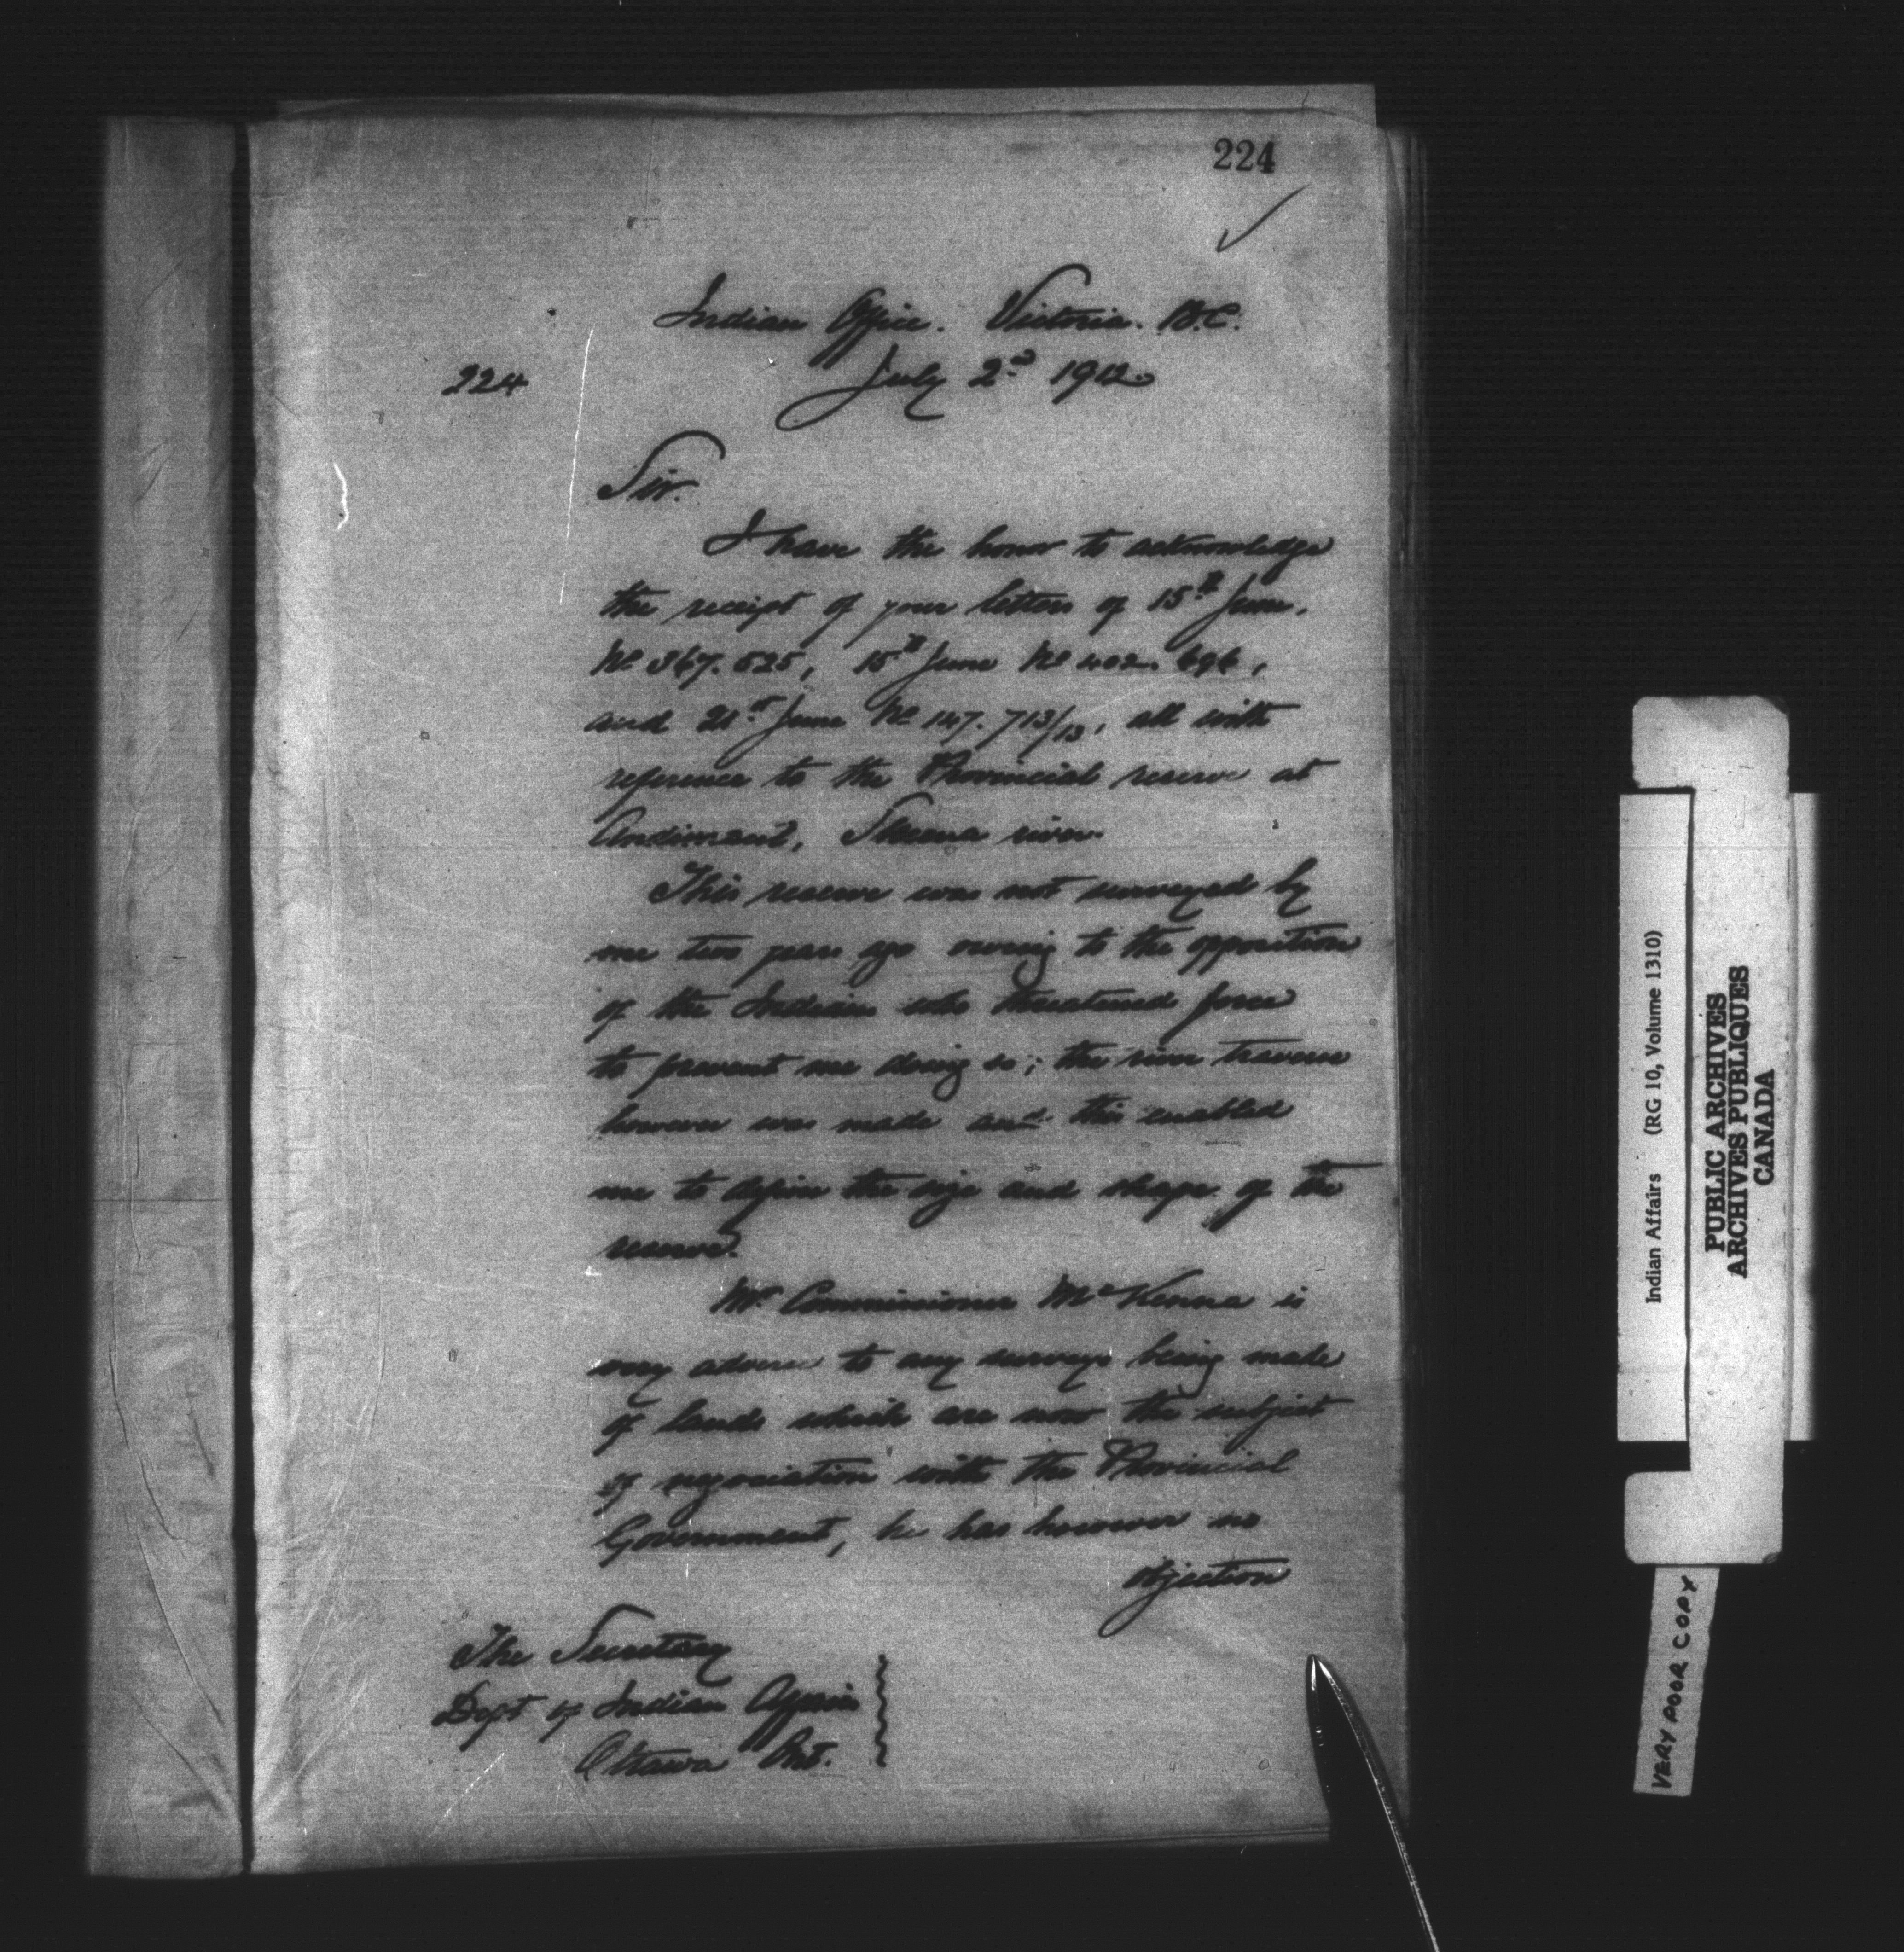 224
Indian Office. Victoria. B.C.
224
July 2nd 1912
Sir.
I have the honor to acknowledge
the receipt of your letters of 15th June.
No 367.525, 15th June No 402.696,
and 21st June No 147.713/13, all with
reference to the Provincial reserve at
Andimaul, Skeena river.
This reserve was not surveyed by
me two years ago owing to the opposition
of the Indians who threatened force
to prevent me doing so; the river traverse
however was made and this enabled
me to define the size and shape of the
reserve.
Mr Commissioner McKenna is
very adverse to any surveys being made
of lands which are now the subject
of negociation with the Provincial
Government, he has however no
objection
The Secretary
Dept of Indian Affairs
Ottawa Ont.
Indian Affairs (RG 10, Volume 1310)
PUBLIC ARCHIVES
ARCHIVES PUBLIQUES
CANADA
VERY POOR COPY